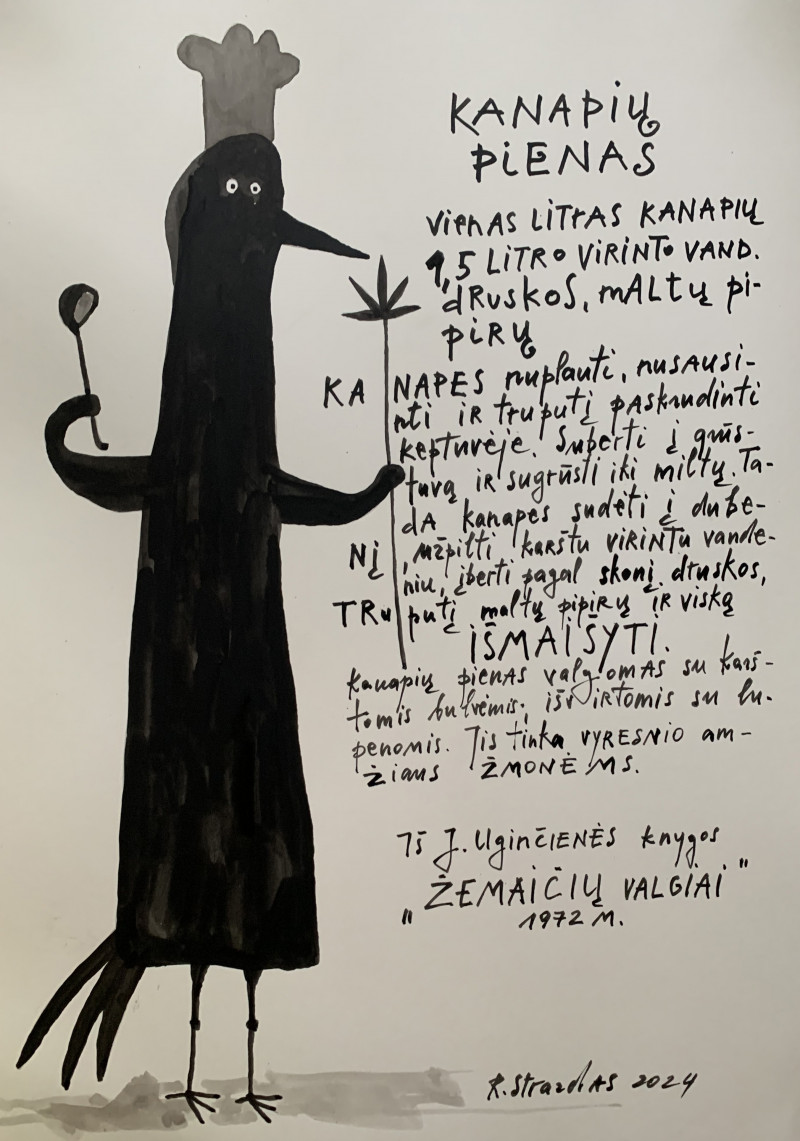 KANAPIŲ
PIENAS
VIENAS LITRAS KANAPIŲ
1,5 LITRO VIRINTO VAND.
DRUSKOS, MALTŲ PI-
PIRŲ
KANAPES nuplauti, nusausi-
nti IR truputį paskrudinti
keptuvėje. Suberti į grūs-
tuvą IR sugrūsti iki miltų. Ta-
DA kanapes sudėti į dube-
NĮ, užpilti karštu VIRINTU vande-
niu, įberti pagal skonį druskos,
TRuputį maltų pipirų IR viską
IŠMAIŠYTI.
Kanapių pienas valgomas su karš-
tomis bulvėmis, išvIRTOMIS su lu-
penomis. Jis tinka VYRESNIO am-
žiaus ŽMONĖMS.
Iš J. UginČIENĖS knygos
„ŽEMAIČIŲ VALGIAI"
1972 M.
R. StrazdAS 2024